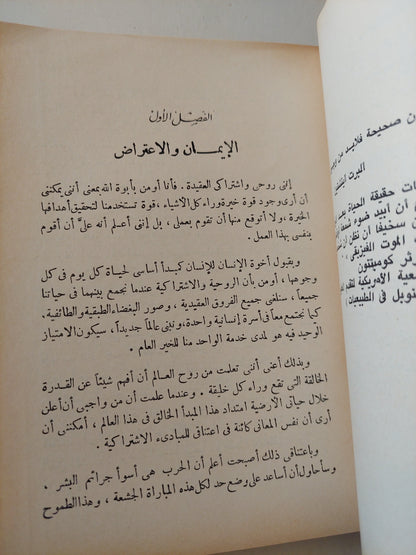 الفصل الأول
الإيمان والاعتراض
إننى روحى واشتراكى العقيدة . فأنا أومن بأبوة الله بمعنى أننى يمكننى
أن أرى وجود قوة خيرة وراء كل الأشياء، قوة تستخدمنا لتحقيق أهدافها
الخيرة، ولا أتوقع منها أن تقوم بعملى ، بل إننى أعلم أنه علىَّ أن أقوم
بنفسى بهذا العمل .
وبقبول أخوة الإنسان للإنسان كمبدأ أساسى لحياة كل يوم فى كل
وجوهها ، أومن بأن الروحية والاشتراكية عندما نجمع بينهما فى حياتنا
جميعاً ، ستلغى جميع الفروق العقيدية ، وصور البغضاء الطبقية والطائفية.
كما نجتمع معاً فى أسرة إنسانية واحدة، ونبنى عالماً جديداً ، سيكون الامتياز
الوحيد فيه هو لمدى خدمة الواحد منا للخير العام .
وبذلك أعنى أننى تعلمت من روح العالم أن أفهم شيئاً عن القدرة
الخالقة التى تقع وراء كل خليقة . وعندما علمت أن من واجبى أن أعلن
خلال حياتى الأرضية امتداد هذا المبدأ الخالق فى هذا العالم ، أمكننى أن
أرى أن نفس المعانى كائنة فى اعتناقى للمبادىء الاشتراكية .
وباعتناقى ذلك أصبحت أعلم أن الحرب هى أسوأ جرائم البشر ،
وسأحاول أن أساعد على وضع حد لكل هذه المباراة الجشعة ، وهذا الطموح
ن صحيحة فلابد من
البرت اينشتين
حقيقة الحياة
أن أبيد ضوء
سخيفا أن نظن أن
الموت الفيزيقى .
رثر كومبتون
معية الأمريكية لتقدم
نوبل فى الطبيعيات )